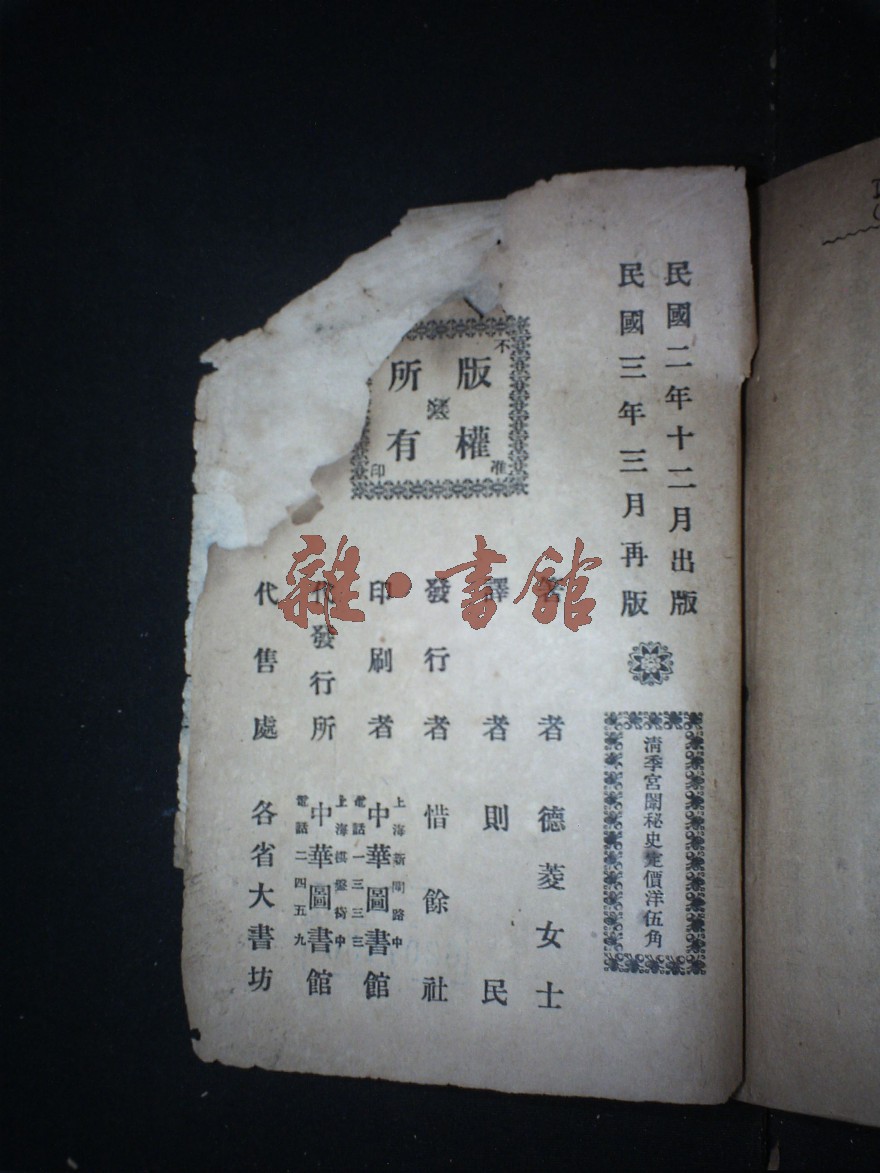 民國二年十二月出版
民國三年三月再版
清季宮闈秘史定價洋伍角
版權所有
不准印
著者 德菱女士
譯者 則民
發行者 惜餘社
上海新閘路中
印刷者 中華圖書館
電話一三三三
上海棋盤街中
代發行所 中華圖書館
電話二四五九
代售處 各省大書坊
雜·書館